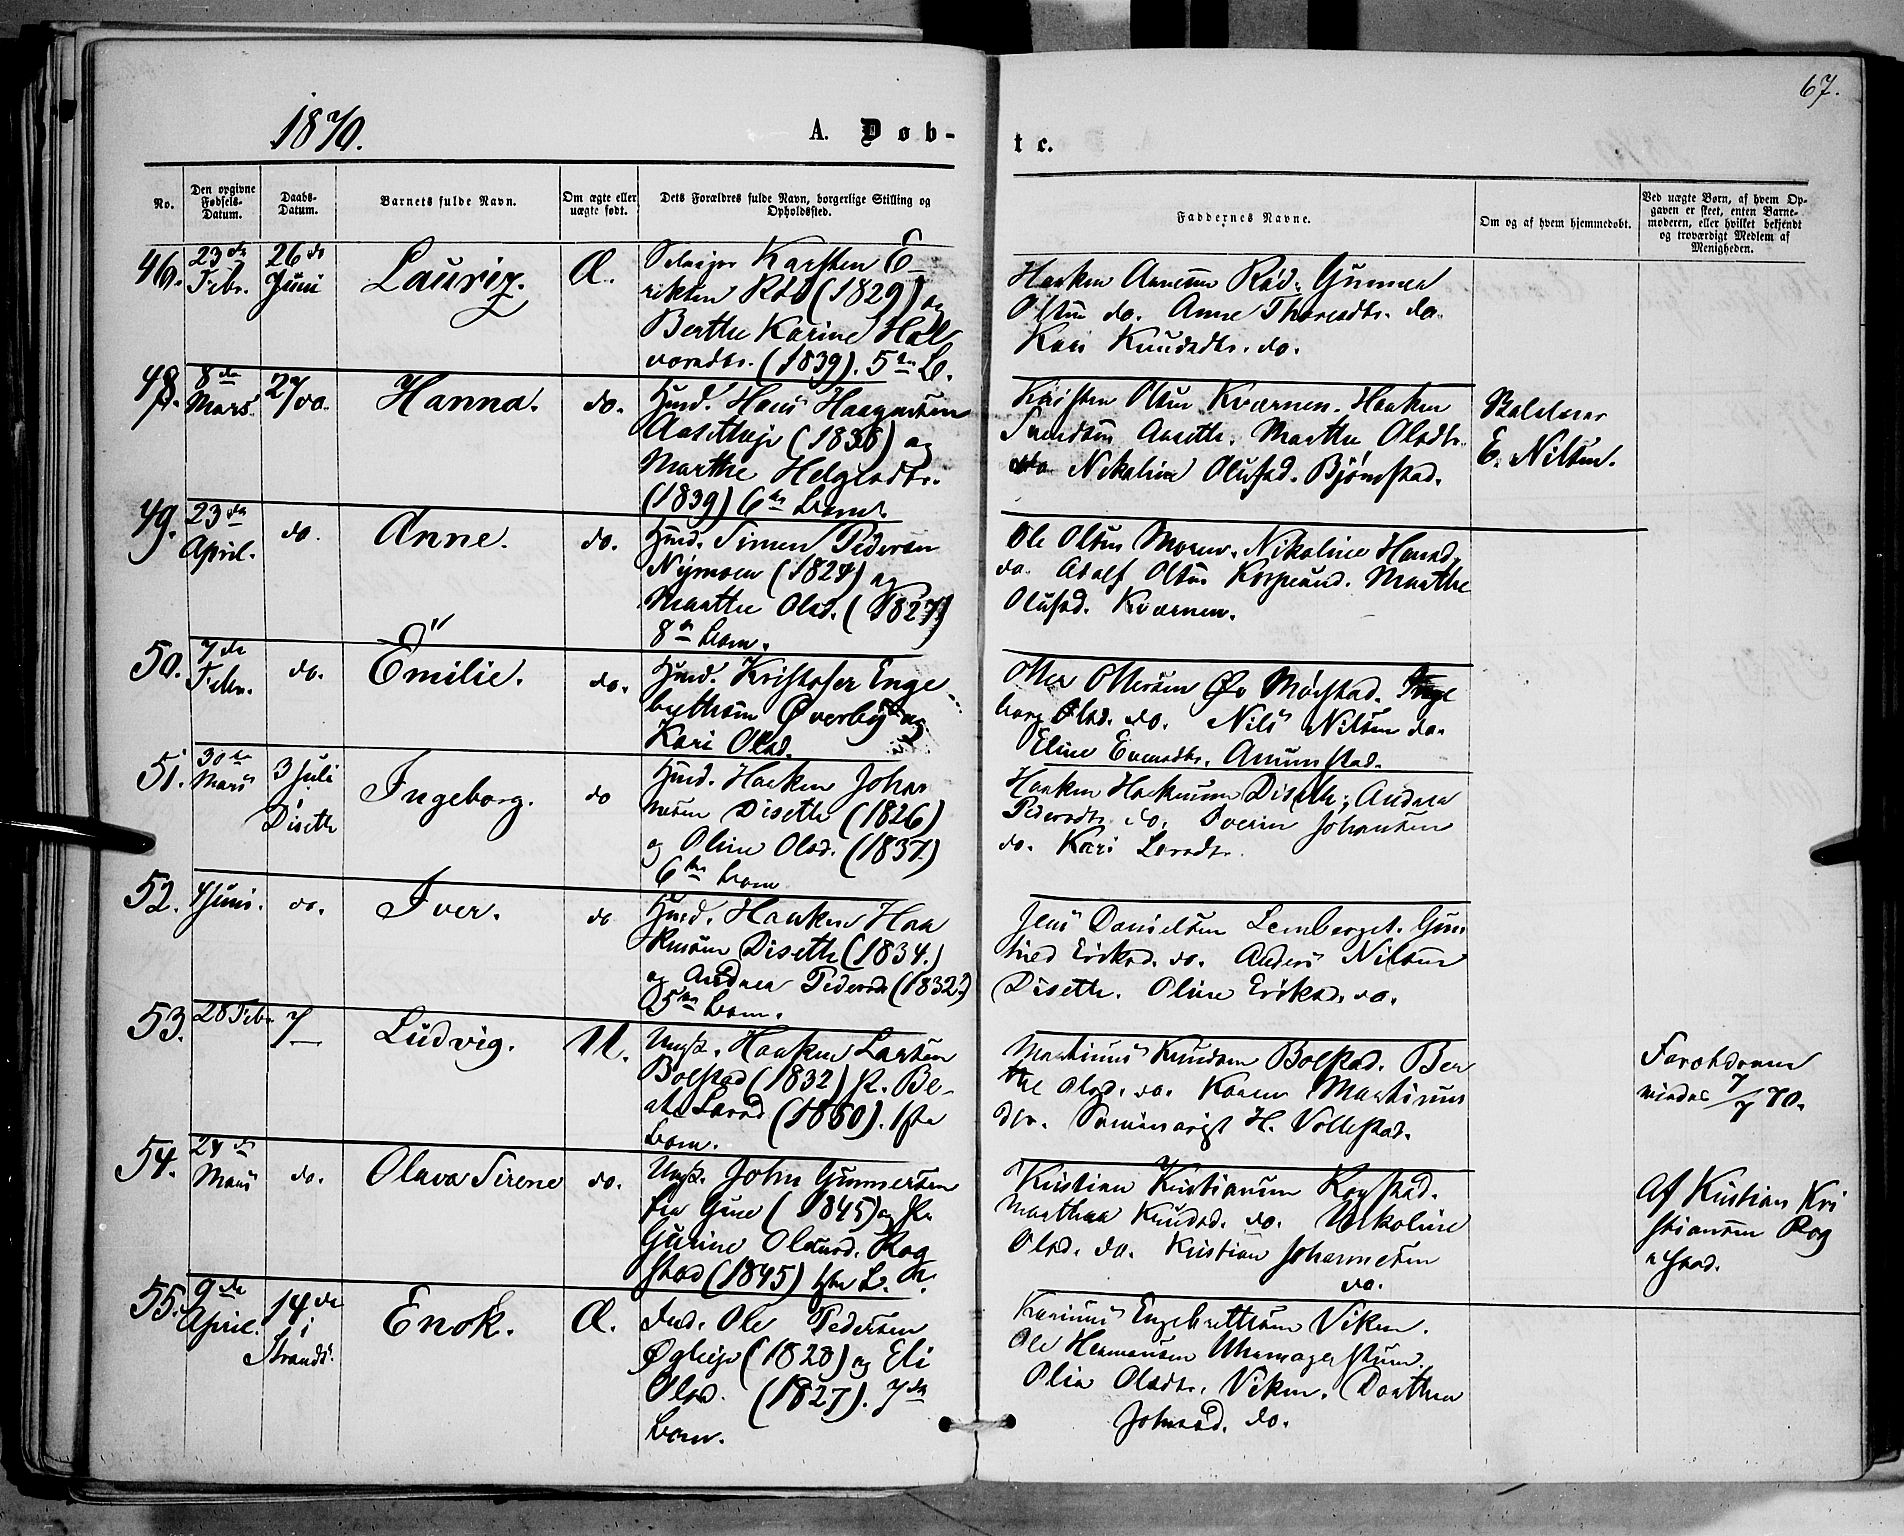 67.
1870.
A. Døb-
te.
No.
Den opgivne Fødsels-Datum.
Daabs-Datum.
Barnets fulde Navn.
Om ægte eller uægte født.
Dets Forældres fulde Navn, borgerlige Stilling og Opholdssted.
Faddernes Navne.
Om og af hvem hjemmedøbt.
Ved uægte Børn, af hvem Opgaven er skeet, enten Barnemoderen, eller hvilket bekjendt og troværdigt Medlem af Menigheden.
46. 23de Febr. 26de Juni Lauriz. Æ.
Selveier Karsten E-
riksen Rød (1829) og
Berthe Karine Hal
vorsdtr. (1839). 5te B.
Haaken Rød. Gunner
Olsen do. Anne Thoresdtr. do
Kari Knudsdtr. do.
48. 8de Mars. 27 do. Hanna. do.
Husd. Hans Haagensen
(1838) og
Marthe Helgesdtr.
(1839) 6te Barn.
Karsten Olsen Kværnen. Haaken
Svendsen Aaseth. Marthe Olsdtr.
do Nikoline Olufsd. Bjørnstad.
E. Nilsen.
49. 23de April. do. Anne. do.
Husd. Simen Pedersen
Nymoen (1824) og
Marthe Olsd. (1827)
8de Barn.
Ole Olsen Moen. Nikoline Hansd.
do. Adolf Olsen Korpsund. Marthe
Olufsd. Kværnen.
50. 7de Febr. do. Emilie. do.
Husd. Kristofer Enge
brettsen Øverby og
Kari Olsd.
Otter Ottersen Øv Mørstad. Inge
borg Olsd. do. Nils Nilsen do.
Eline Evensdtr. Amundstad.
51. 30te Mars 3 Juli i Diseth Ingeborg. do
Husd. Haaken Johan
nesen Diseth (1826)
og Oline Olsd. (1837.)
6te Barn
Haaken Hakensen Diseth; Andrea
Pedersdtr. do. Sverin Johansen
do. Kari Larsdtr.
52. 4 Juni. do. Iver. do
Husd. Haaken Haa
kensen Diseth (1834.)
og Andrea Pedersd. (1832.)
5te Barn.
Jens Danielsen Lemberget. Gun
hild Eriksd. do. Anders Nilsen
Diseth. Oline Eriksd. do.
53. 28 Febr. 7 — Ludvig. U.
Ungk. Haaken Larsen
Bolstad (1832) P. Be-
ate Larsd. (1860). 1ste
Barn.
Martinus Knudsen Bolstad. Ber
the Olsd. do. Karen Martinus
dtr. Seminarist H. Vollestad.
7/7 70.
54. 24de Mars do. Olava Sirene do.
Ungk. John Gunnersen
fra Grue (1845) og P.
Gurine Olsd. Rog
stad (1845) 1ste B.
Kristian Kristiansen Rogstad.
Marthea Knudsd. do. Nikoline
Olsd. do. Kristian Johannesen
do.
Af Kristian Kri
stiansen Rog
stad.
55. 9de April. 14de i Strands. Enok. Æ.
Ole Pedersen
(1828) og Eli
Olsd. (1827). 7de
Barn.
Karinus Engebrettsen Viken.
Ole Hermansen
Olia Olsdtr. Viken. Dorthea
Johnsd. do.